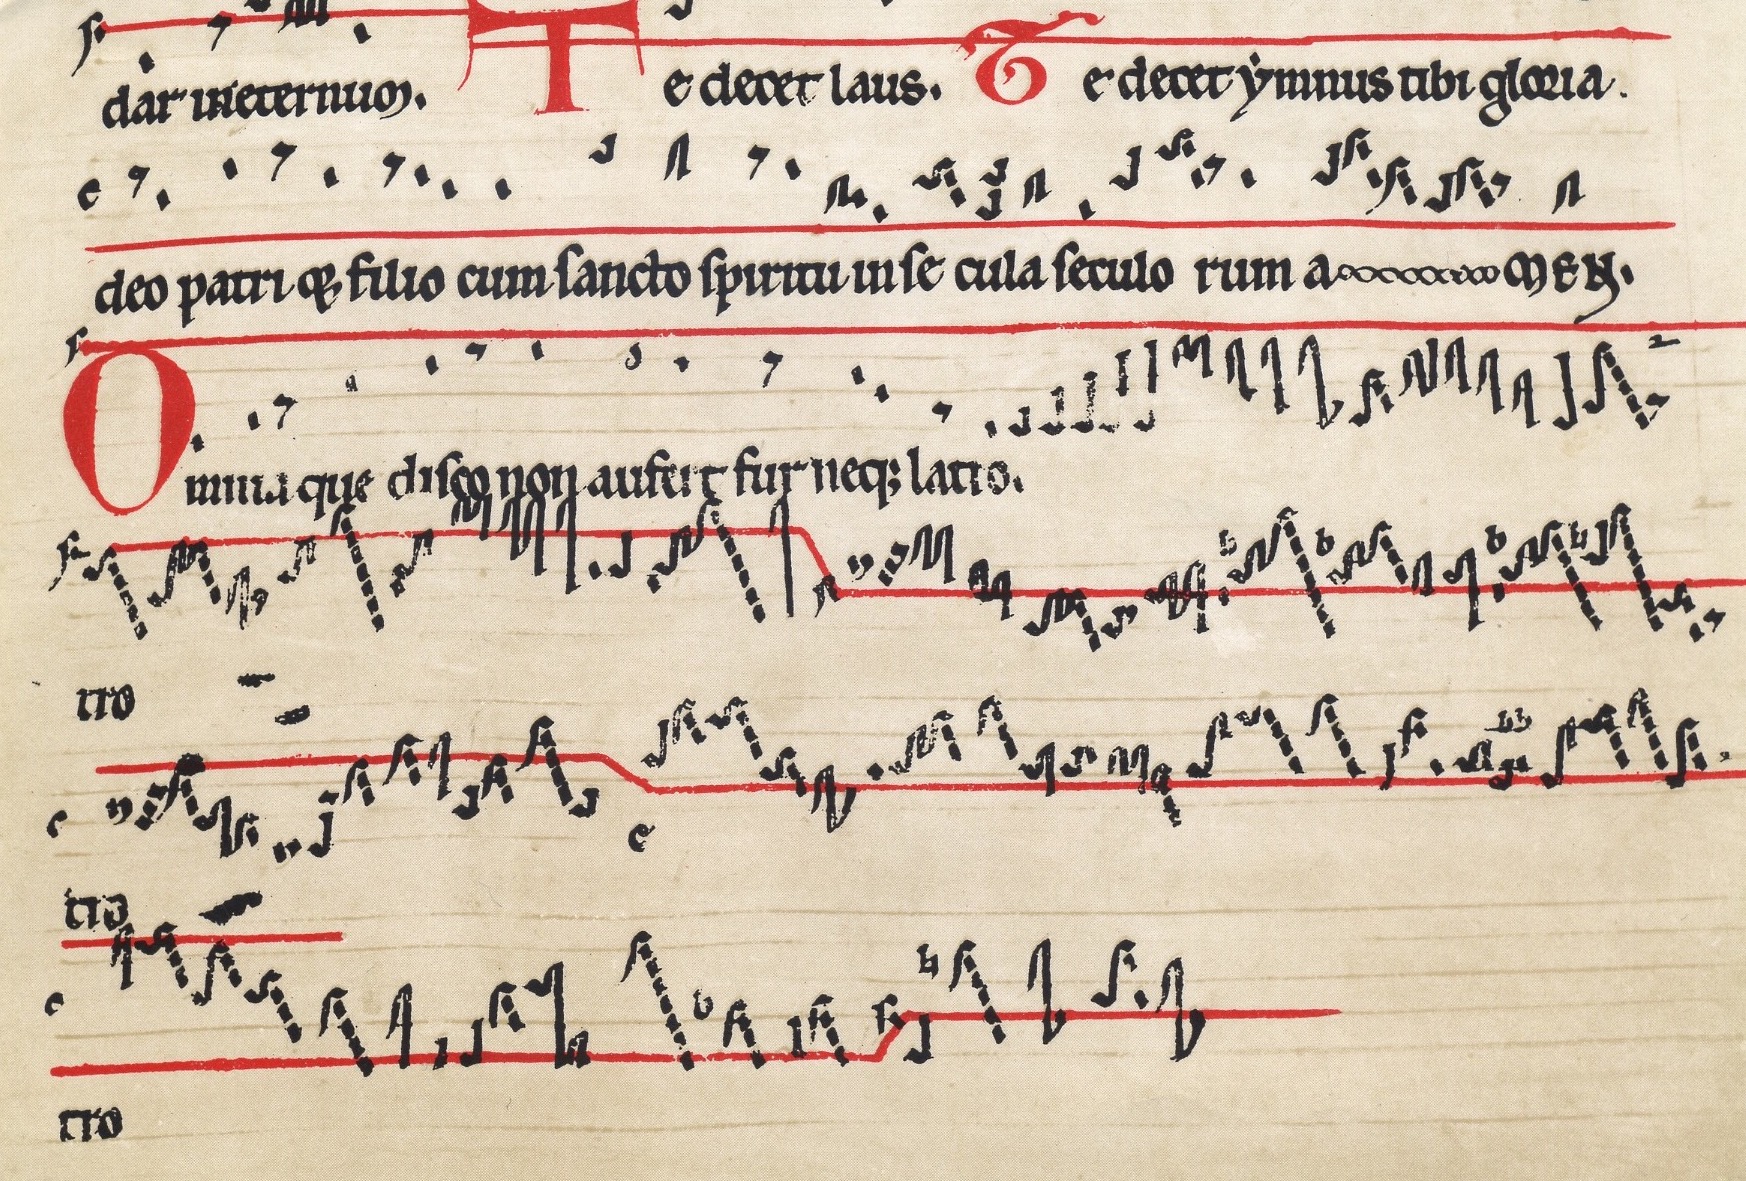 dat in eternum. Te decet laus. Te decet ẏmnus tibi gloria.
deo patri q; filio cum sancto spiritu in se cula seculo rum aMEN.
Omnia que disco non aufert fur neq; latro.
tro
tro
tro